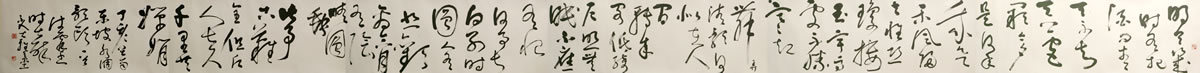 明月幾
時有把
酒問青
天不知
天上宮
闕今夕
是何年
我欲乘
風歸
去惟恐
瓊樓
玉宇高
處不勝
寒起
舞弄
清影何
似在人
間轉朱
閣低綺
戶照無
眠不應
有恨
何事長
向別時
圓人有
悲歡離合
月有
陰晴
圓缺
此事
古難
全但願
人長久
千里共
嬋娟
東坡水調
歌頭